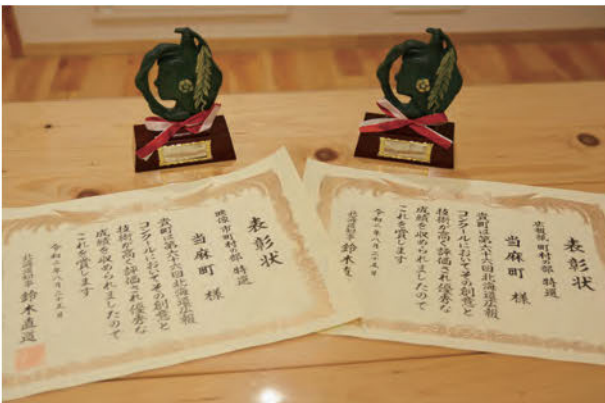 表彰状
広報紙 町村の部 特選
当麻町 様
貴町は第六十六回北海道広報
コンクールにおいてその創意と
技術が高く評価され優秀な
成績を収められましたので
これを賞します
令和二年八月二十五日
北海道知事 鈴木直
表彰状
映像 市町村の部 特選
当麻町 様
貴町は第六十六回北海道広報
コンクールにおいてその創意と
技術が高く評価され優秀な
成績を収められましたので
これを賞します
令和二年八月二十五日
北海道知事 鈴木直道